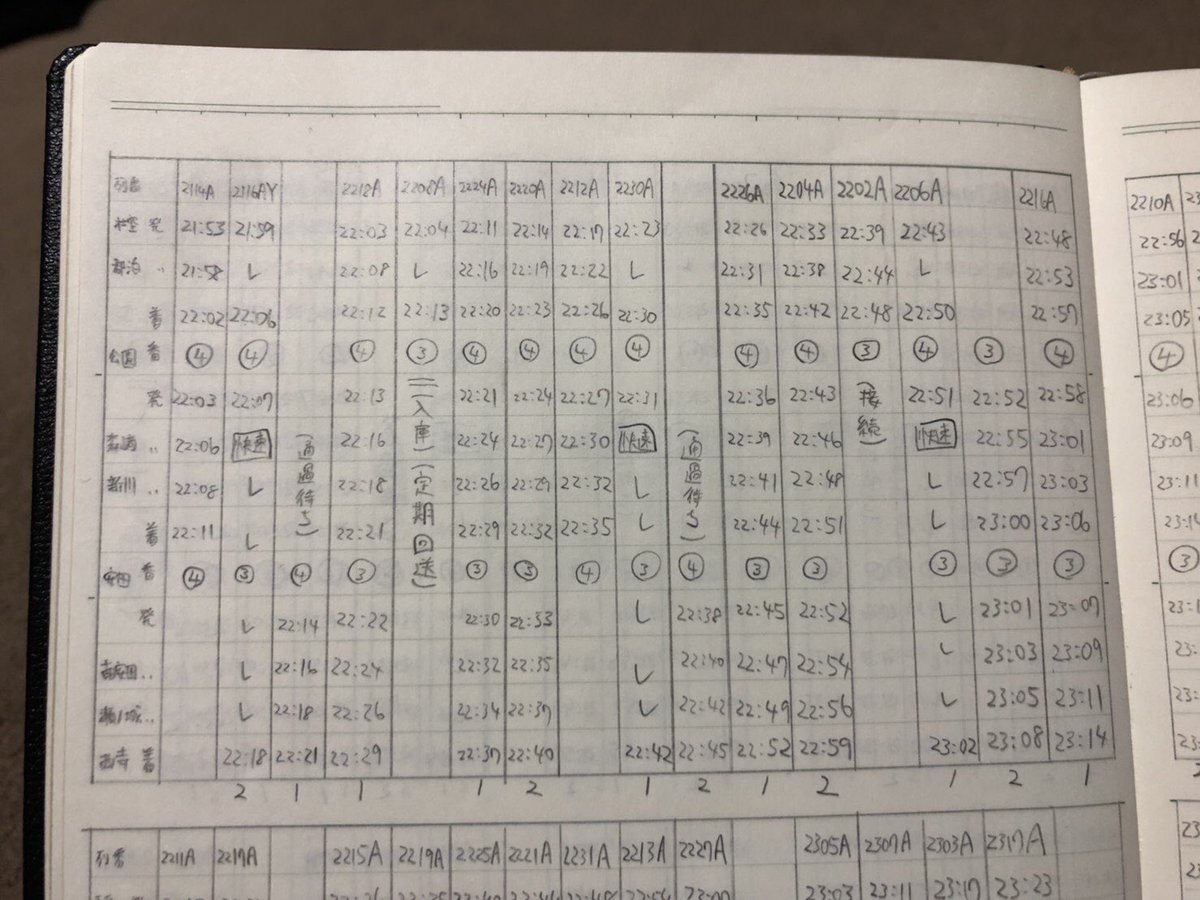 列番 2114A 2116AY 2218A 2208A 2224A 2220A 2212A 2230A 2226A 2204A 2202A 2206A 2216A
発 21:53 21:59 22:03 22:04 22:11 22:14 22:17 22:23 22:26 22:33 22:39 22:43 22:48
〃 21:58 レ 22:08 レ 22:16 22:19 22:22 レ 22:31 22:38 22:44 レ 22:53
着 22:02 22:06 22:12 22:13 22:20 22:23 22:26 22:30 22:35 22:42 22:48 22:50 22:57
公園 番 ④ ④ ④ ③ ④ ④ ④ ④ ④ ④ ③ ④ ③ ④
発 22:03 22:07 22:13 22:21 22:24 22:27 22:31 22:36 22:43 22:51 22:52 22:58
〃 22:06 快速 22:16 22:24 22:27 22:30 快速 22:39 22:46 快速 22:55 23:01
新川 〃 22:08 レ 22:18 22:26 22:29 22:32 レ 22:41 22:48 レ 22:57 23:03
着 22:11 レ 22:21 22:29 22:32 22:35 レ 22:44 22:51 レ 23:00 23:06
(通過待ち)
(入庫)(定期回送)
(通過待ち)
(接続)
番 ④ ③ ④ ③ ③ ③ ④ ③ ④ ③ ③ ③ ③ ③
発 レ 22:14 22:22 22:30 22:33 レ 22:38 22:45 22:52 レ 23:01 23:07
〃 レ 22:16 22:24 22:32 22:35 レ 22:40 22:47 22:54 レ 23:03 23:09
〃 レ 22:18 22:26 22:34 22:37 レ 22:42 22:49 22:56 レ 23:05 23:11
西寺 着 22:18 22:21 22:29 22:37 22:40 22:42 22:45 22:52 22:59 23:02 23:08 23:14
2 1 1 1 2 1 2 1 2 1 2 1
列番 2211A 2217A 2215A 2219A 2225A 2221A 2231A 2213A 2227A 2305A 2307A 2303A 2317A
23:03 23:11 23:17 23:23
2210A
22:56
23:01
23:05
④
23:06
23:09
23:11
③